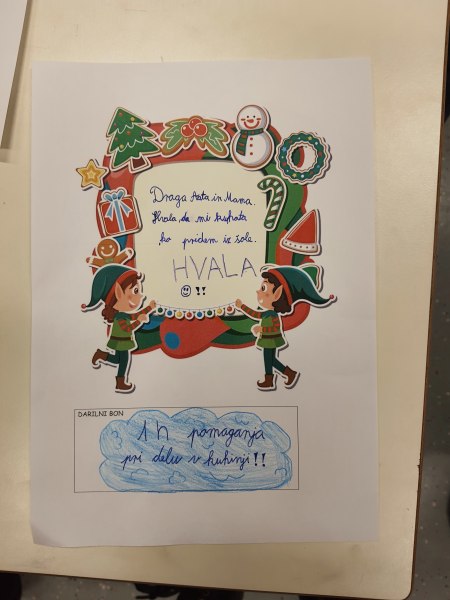 Draga Aata in Mama.
Hvala da mi kuhata
ko pridem iz šole.
HVALA
!!
DARILNI BON
1 h pomaganja
pri delu v kuhinji!!